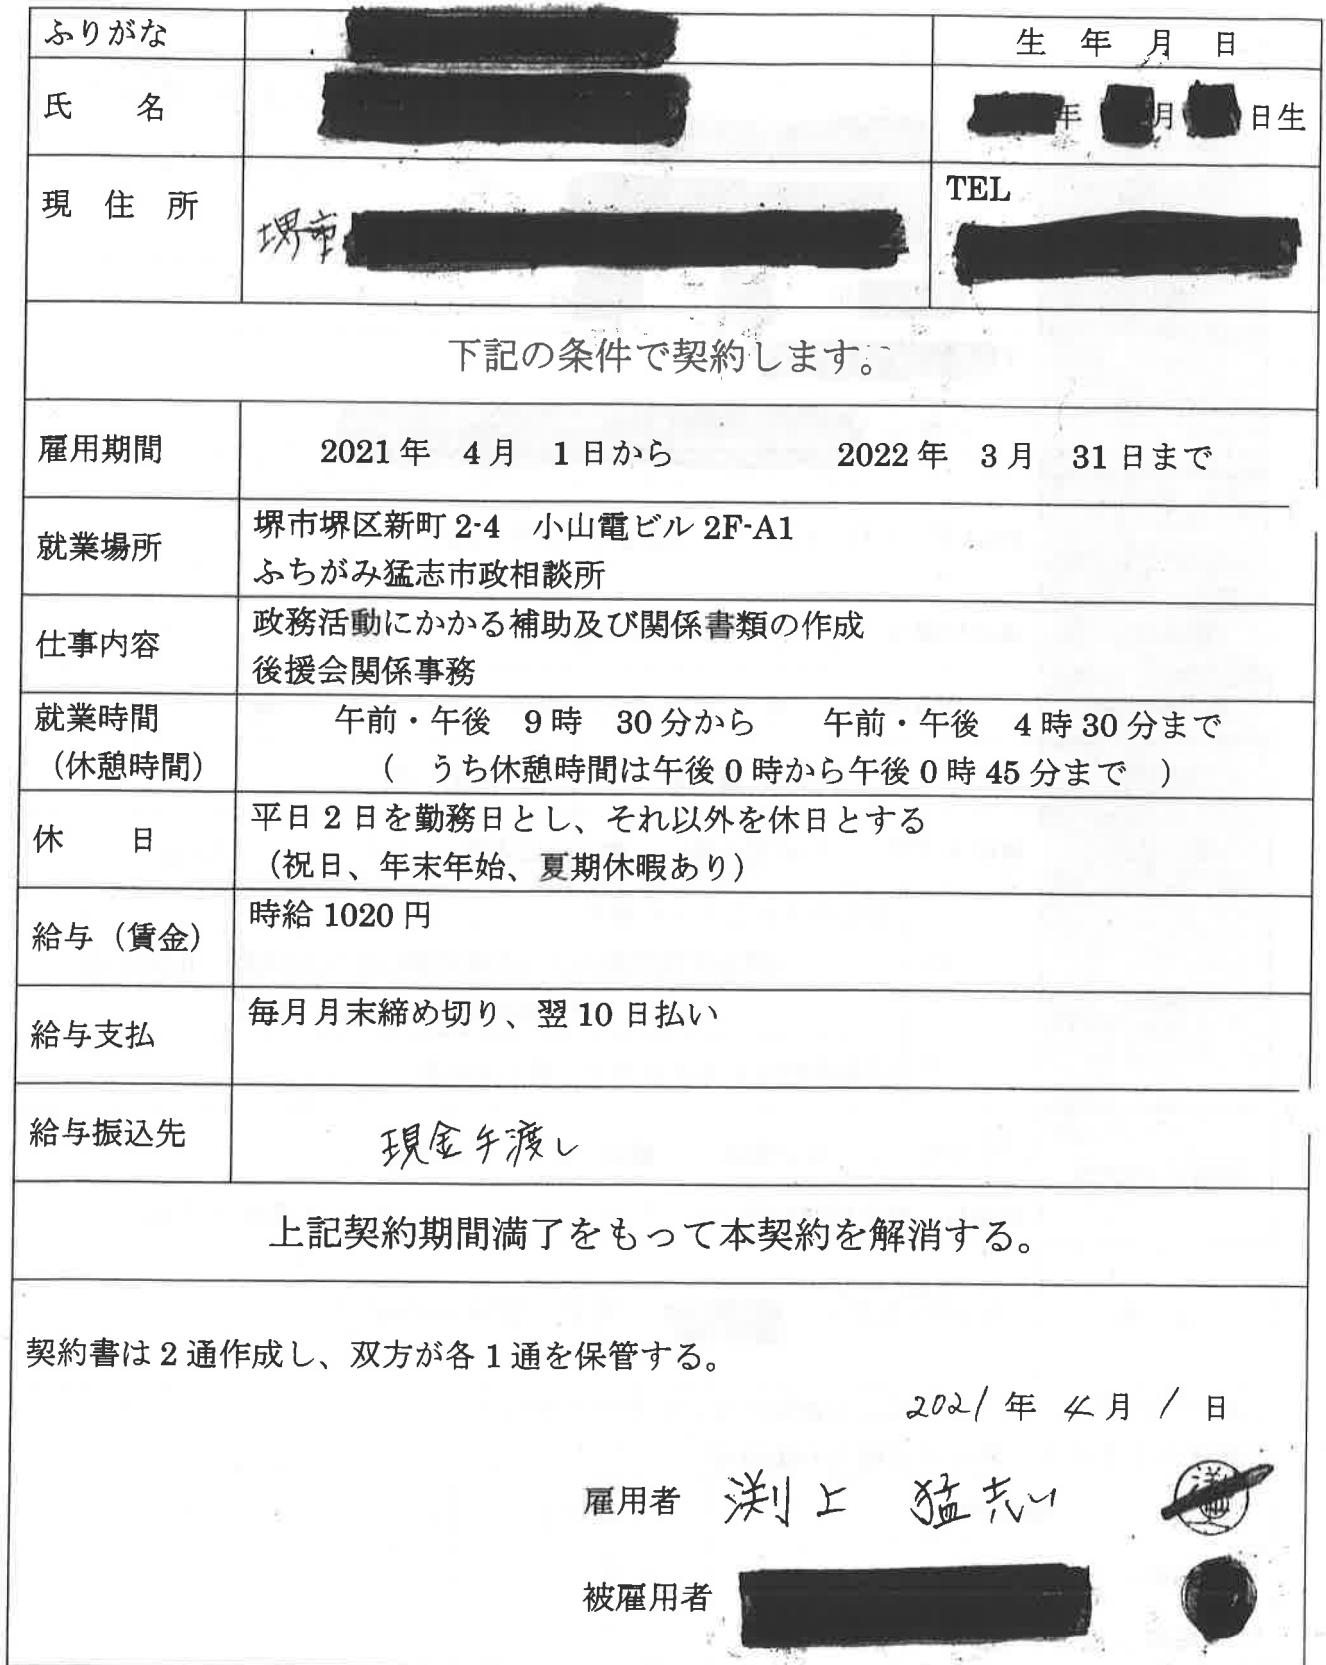 ふりがな
生 年 月 日
氏 名
年 月 日生
現 住 所
堺市
TEL
下記の条件で契約します。
雇用期間
2021年 4月 1日から 2022年 3月 31日まで
就業場所
堺市堺区新町2-4 小山電ビル2F-A1
ふちがみ猛志市政相談所
仕事内容
政務活動にかかる補助及び関係書類の作成
後援会関係事務
就業時間
(休憩時間)
午前・午後 9時 30分から 午前・午後 4時30分まで
( うち休憩時間は午後0時から午後0時45分まで )
休 日
平日2日を勤務日とし、それ以外を休日とする
(祝日、年末年始、夏期休暇あり)
給与(賃金)
時給1020円
給与支払
毎月月末締め切り、翌10日払い
給与振込先
現金手渡し
上記契約期間満了をもって本契約を解消する。
契約書は2通作成し、双方が各1通を保管する。
2021年 4月 1日
雇用者 渕上 猛志
被雇用者